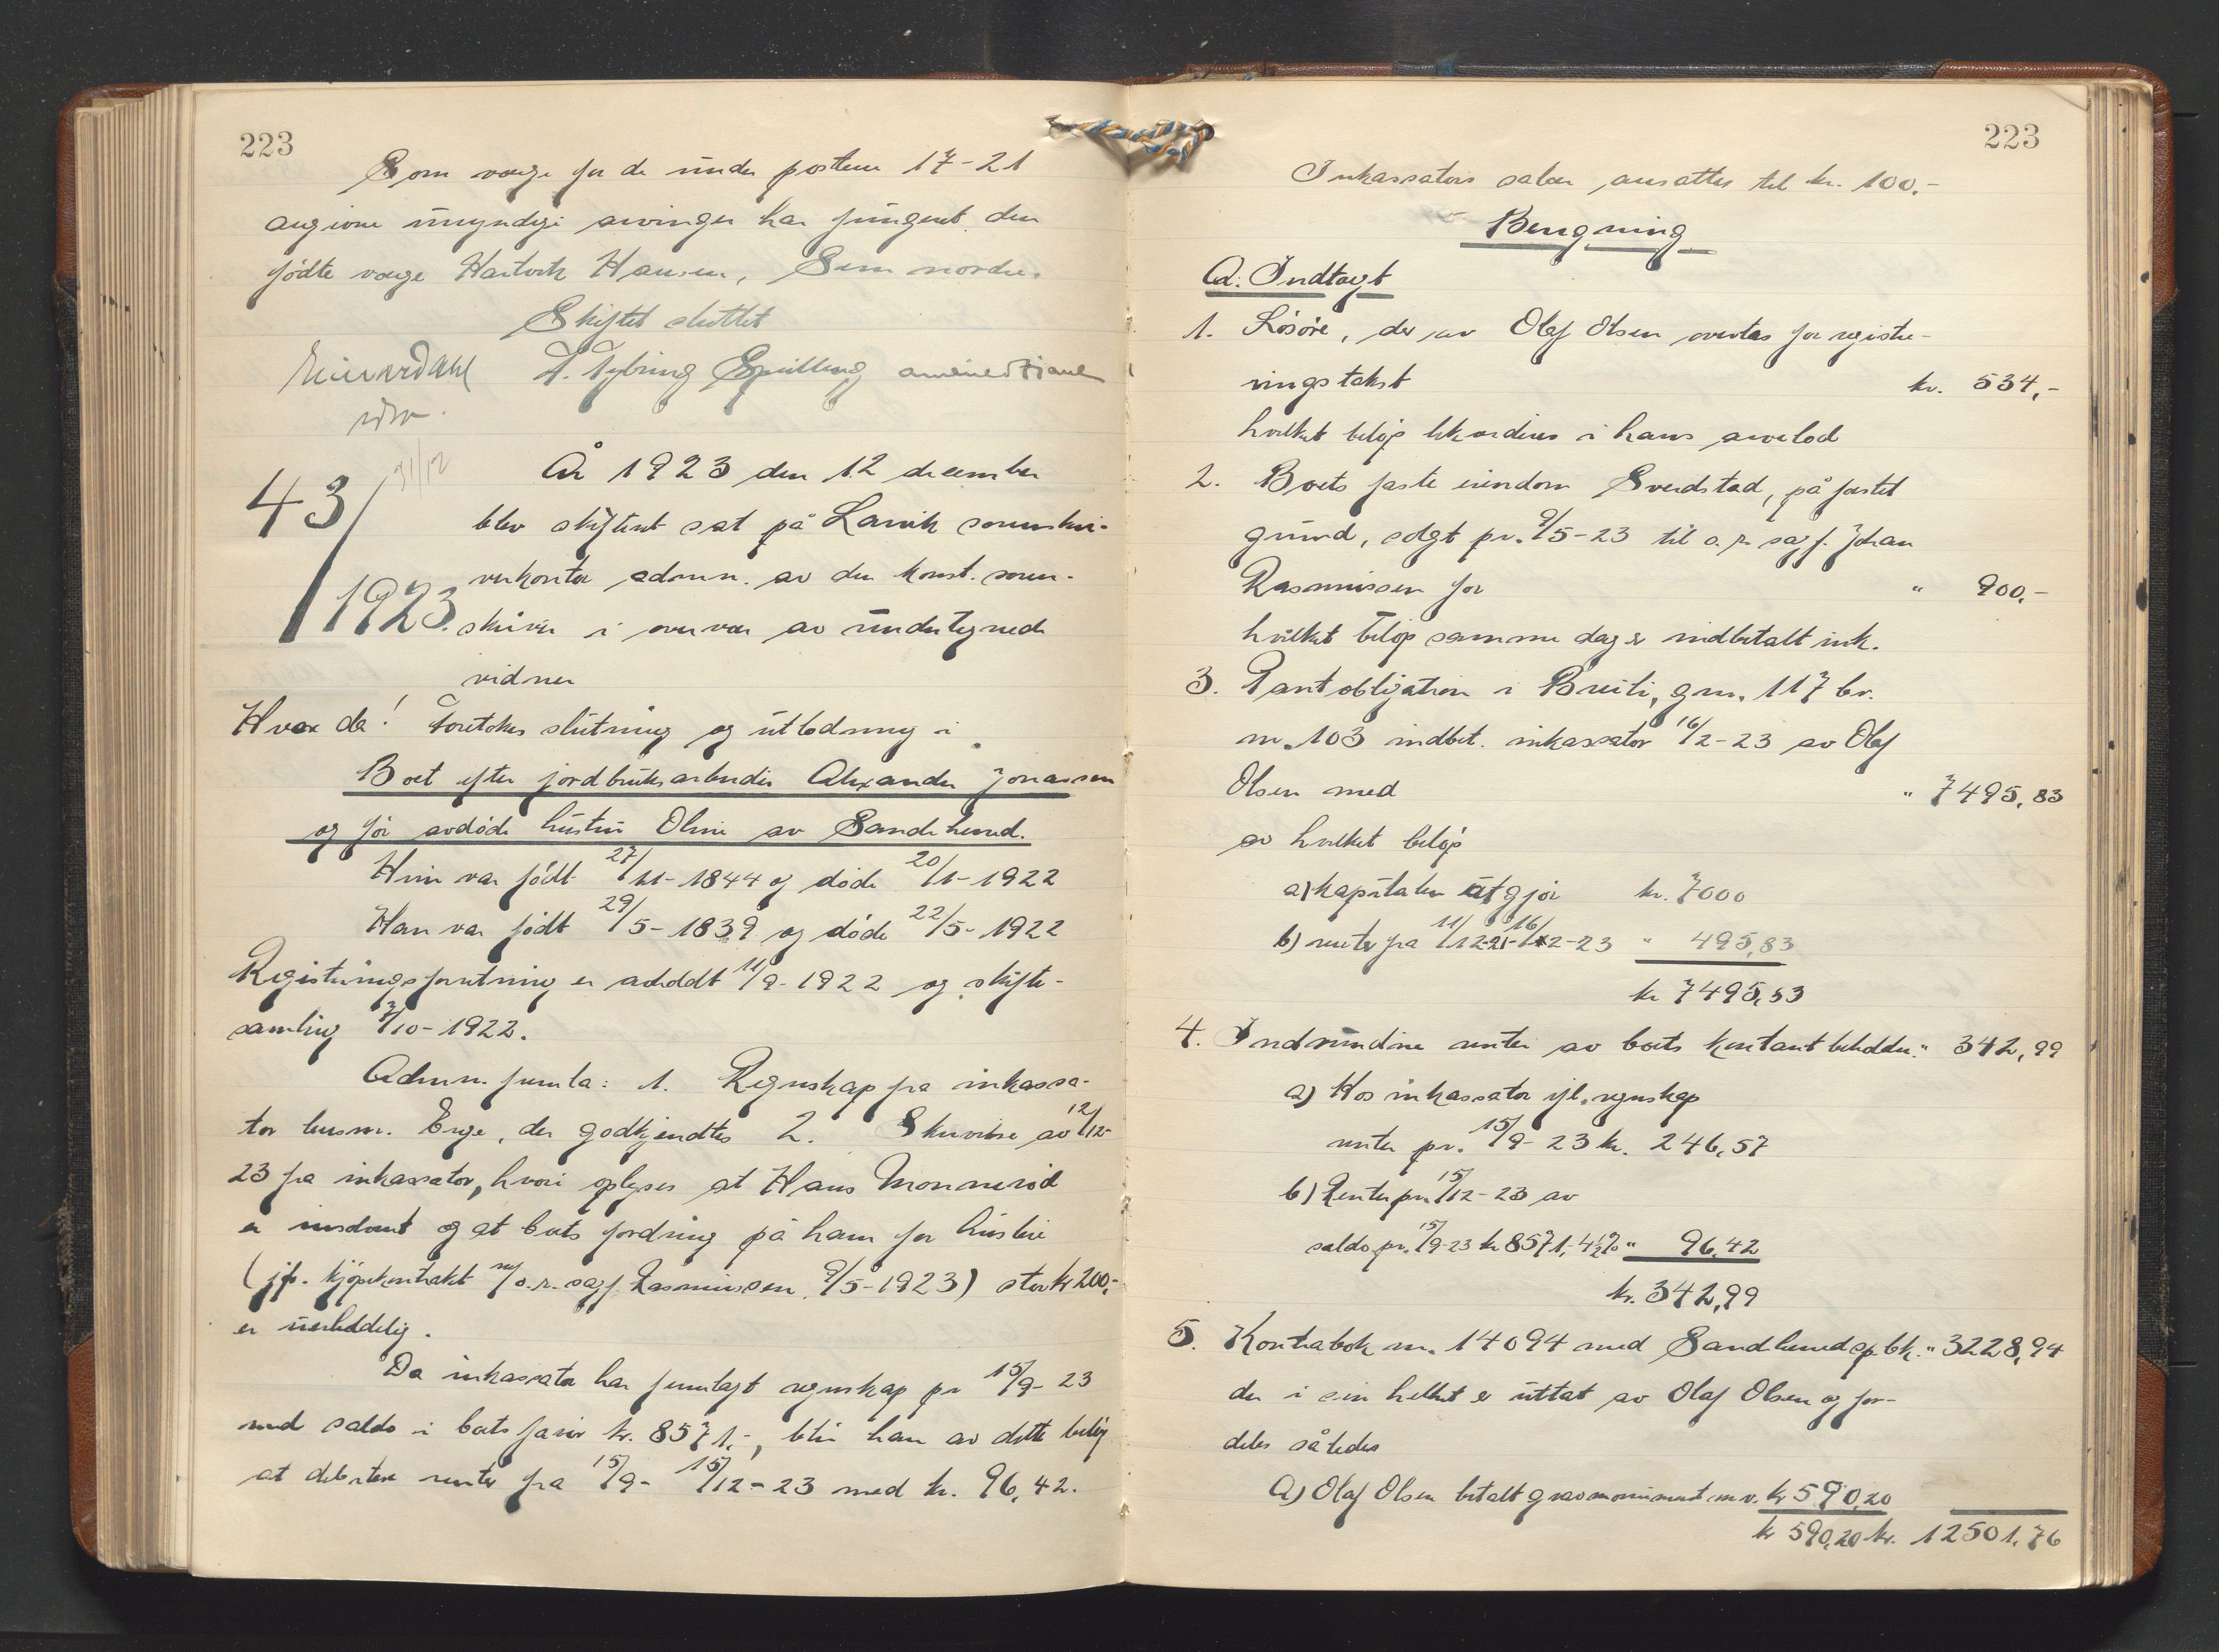 223
Som verge for de under postene 17-21
angivne umyndige arvinger har fungert den
fødte verge Hartvik Hansen, Sem nordre.
Skiftet sluttet
Einar Dahl F. Nybring Spilling
43/1923.
31/12
År 1923 den 12 december
blev skifteret sat på Larvik sorenskri-
verkontor admin. av den konst. soren-
skriver i overvær av undertegnede
vidner
Hvor da! Foretokes slutning og utlodning i
Boet efter jordbruksarbeider Alexander Jonassen
og før avdøde hustru Oline av Sandeherred.
Hun var født 27/11-1844 og døde 20/1-1922
Han var født 29/5-1839 og døde 22/5-1922
Registreringsforretning er avholdt 11/9-1922 og skifte-
samling 7/10-1922.
Admin. fremla: 1. Regnskap fra inkassa-
tor lensm. Enge, der godkjendtes 2. Skrivelse av 12/12-
23 fra inkassator, hvori oplyses at Hans Monnerød
er insolvent og at boets fordring på ham for husleie
(jfr. kjøpekontrakt m/o.r. sagf. Rasmussen 9/5-1923) stor kr 200,-
er uerholdelig.
Da inkassator har fremlagt regnskap pr 15/9-23
med saldo i boets favør kr. 8571,-, blir han av dette beløp
at debitere renter fra 15/9- 15/12-23 med kr. 96,42.
223
Inkassators salær ansattes til kr. 100.-
Beregning
A. Indtægt
1. Løsøre, der av Olaf Olsen overtas for registre-
ringstakst kr. 534,-
hvilket beløp likvideres i hans arvelod
2. Boets faste eiendom Sverdstad, på festet
grund, solgt pr. 9/5-23 til o.r. sagf. Johan
Rasmussen for " 900,-
hvilket beløp samme dag er indbetalt ink.
3. Pantobligation i Breili, gnr. 117 br.
nr. 103 indbet. inkassator 16/2-23 av Olaf
Olsen med " 7495,83
av hvilket beløp
a) kapitalen utgjør kr. 7000
b) renter fra 11/12-21-16/2-23 " 495,83
kr 7495,83
4. Indvundne renter av boets kontantbeholdn. " 342,99
a) Hos inkassator ifl. regnskap
renter pr. 15/9-23 kr. 246,57
b) Renter pr. 15/12-23 av
saldo pr. 15/9-23 kr 8571,- 4½% " 96,42
kr. 342,99
5. Kontrabok nr. 14094 med Sandeherred sp.bk. " 3228,94
der i sin helhet er uttat av Olaf Olsen og for-
deles således
a) Olaf Olsen betalt gravmonument m.v. kr 590,20
kr 590,20 kr. 12501,76